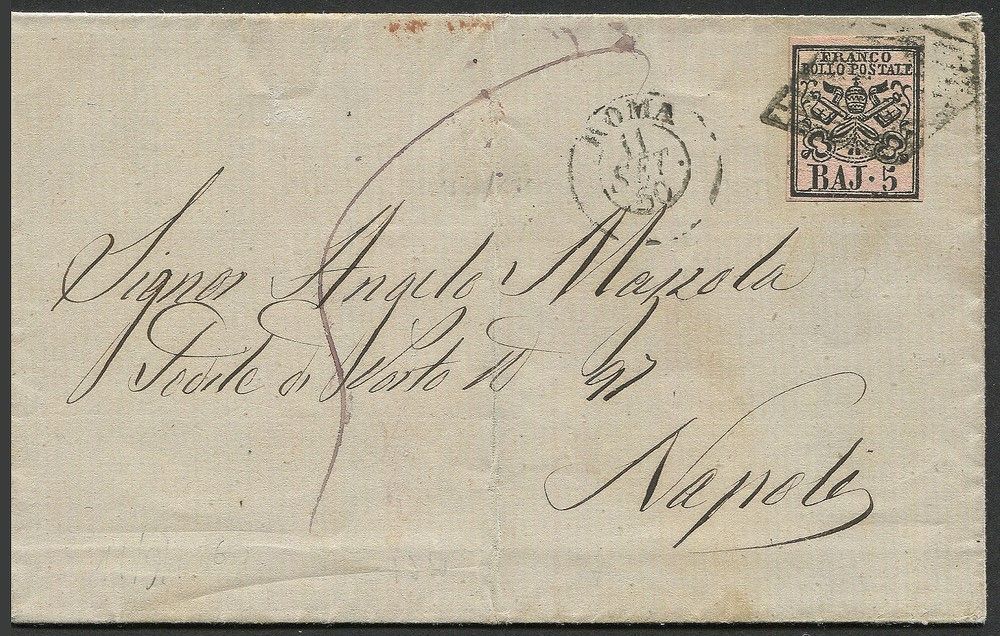 FRANCO
BOLLO POSTALE
BAJ. 5
ROMA
11
SET
60
Signor Angelo Mazzola
Sedile di Porto N° 97
Napoli